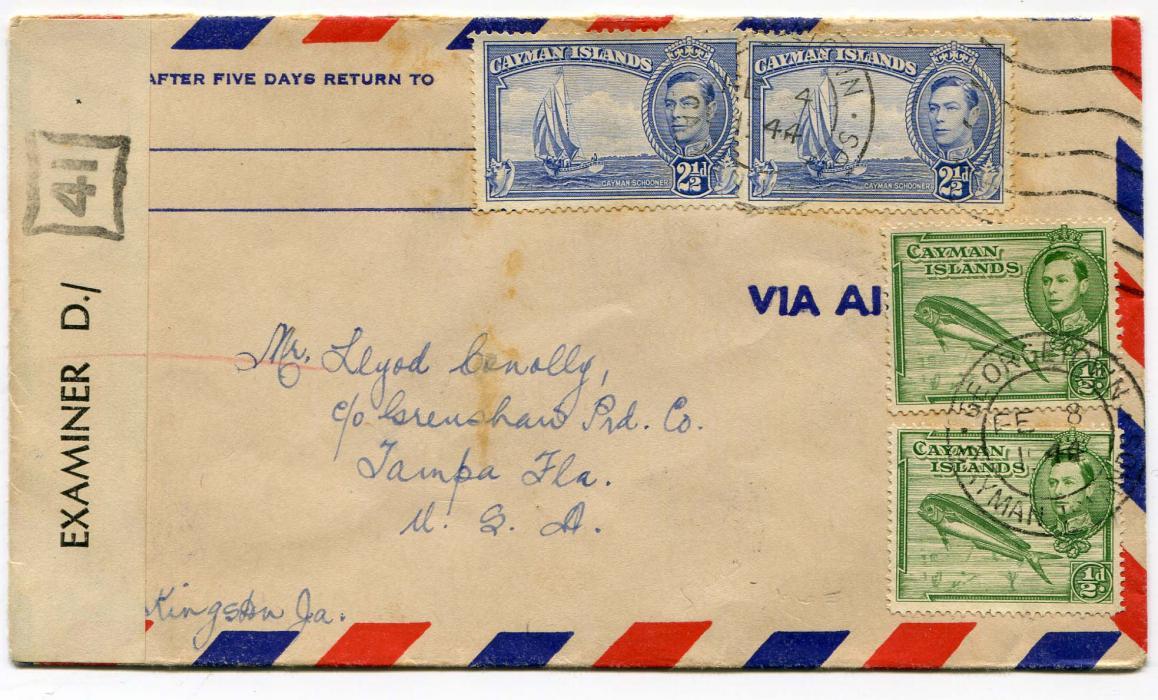 AFTER FIVE DAYS RETURN TO
CAYMAN ISLANDS
CAYMAN SCHOONER
2½d
CAYMAN ISLANDS
CAYMAN SCHOONER
2½d
44
VIA AI
CAYMAN
ISLANDS
½d
CAYMAN
ISLANDS
½d
GEORGETOWN
FE 8
44
CAYMAN
41
EXAMINER D./
Mr. Llyod Conolly,
c/o Grenshaw Prd. Co.
Tampa Fla.
U. S. A.
Kingston Ja.